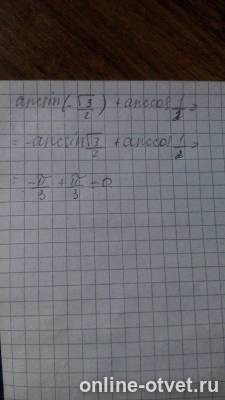 arcsin(-√3/2) + arccos 1/2 =
= -arcsin √3/2 + arccos 1/2 =
= -π/3 + π/3 = 0
online-otvet.ru